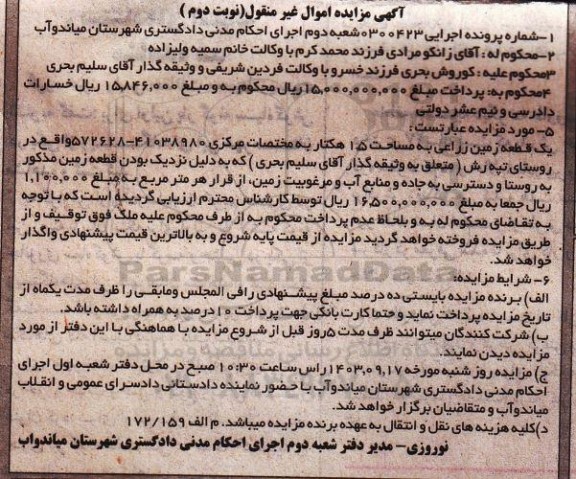 آگهی مزایده اموال غیر منقول(نوبت دوم )
۱-شماره پرونده اجرایی ۰۳۰۰۴۲۳شعبه دوم اجرای احکام مدنی دادگستری شهرستان میاندوآب
۲-محکوم له : آقای زانکو مرادی فرزند محمد کرم با وکالت خانم سمیه ولیزاده
۳محکوم علیه : کوروش بحری فرزند خسرو با وکالت فردین شریفی و وثیقه گذار آقای سلیم بحری
۴محکوم به: پرداخت مبلغ ۱۵,۰۰۰,۰۰۰,۰۰۰ریال محکوم به و مبلغ ۱۵,۸۴۶,۰۰۰ ریال خسارات
دادرسی و نیم عشر دولتی
۵- مورد مزایده عبارتست :
یک قطعه زمین زراعی به مساحت ۱,۵ هکتار به مختصات مرکزی ۴۱۰۳۸۹۸۰-۵۷۲۶۲۸واقع در
روستای تپه رش ( متعلق به وثیقه گذار آقای سلیم بحری ) که به دلیل نزدیک بودن قطعه زمین مذکور
به روستا و دسترسی به جاده و منابع آب و مرغوبیت زمین، از قرار هر متر مربع به مبلغ ۱,۱۰۰,۰۰۰
ریال جمعا به مبلغ ۱۶,۵۰۰,۰۰۰,۰۰۰ ریال توسط کارشناس محترم ارزیابی گردیده است که با توجه
به تقاضای محکوم له به و بلحاظ عدم پرداخت محکوم به از طرف محکوم علیه ملک فوق توقیف و از
طریق مزایده فروخته خواهد گردید مزایده از قیمت پایه شروع و به بالاترین قیمت پیشنهادی واگذار
خواهد شد.
۶- شرایط مزایده:
الف) برنده مزایده بایستی ده درصد مبلغ پیشنهادی را فی المجلس ومابقی را ظرف مدت یکماه از
تاریخ مزایده پرداخت نماید و حتما کارت بانکی جهت پرداخت ۱۰ درصد به همراه داشته باشد.
ب) شرکت کنندگان میتوانند ظرف مدت ۵روز قبل از شروع مزایده با هماهنگی با این دفتر از مورد
مزایده دیدن نمایند.
ج) مزایده روز شنبه مورخه ۱۴۰۳,۰۹,۱۷راس ساعت ۱۰:۳۰ صبح در محل دفتر شعبه اول اجرای
احکام مدنی دادگستری شهرستان میاندوآب با حضور نماینده دادستانی دادسرای عمومی و انقلاب
میاندوآب و متقاضیان برگزار خواهد شد.
د)کلیه هزینه های نقل و انتقال به عهده برنده مزایده میباشد. م الف ۱۷۲/۱۵۹
نوروزی- مدیر دفتر شعبه دوم اجرای احکام مدنی دادگستری شهرستان میاندواب
ParsNamadData